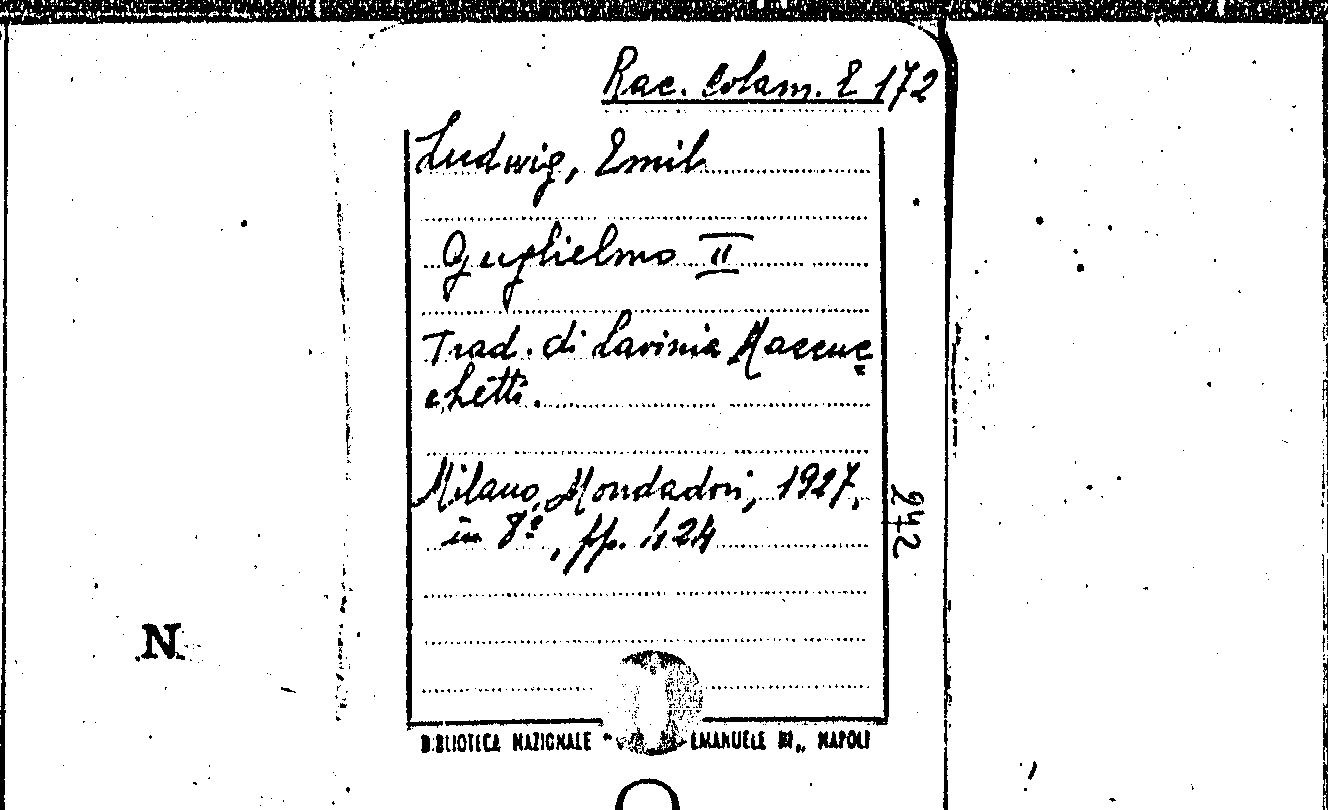 Rac. Colam. E 172
Ludwig, Emil
Guglielmo II
Trad. di Lavinia Mazzuc
chetti.
Milano, Mondadori, 1927,
in 8º, pp. 424
242
N
BIBLIOTECA NAZIONALE " EMANUELE III„ NAPOLI